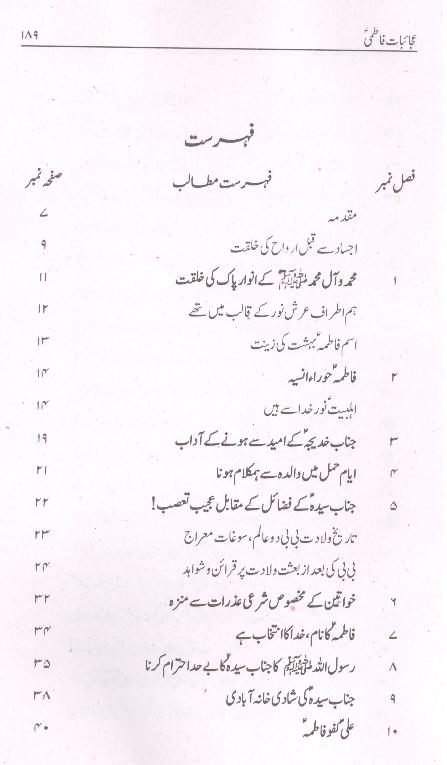 عجائبات فاطمیؑ ۱۸۹
فہرست
فصل نمبر فہرست مطالب صفحہ نمبر
مقدمہ ۷
اجساد سے قبل ارواح کی خلقت ۹
۱ محمدؐ و آل محمد ﷺ کے انوار پاک کی خلقت ۱۱
ہم اطراف عرش نور کے قالب میں تھے ۱۲
اسم فاطمہؑ بہشت کی زینت ۱۳
۲ فاطمہؑ حوراء انسیہ ۱۴
اہلبیتؑ نور خدا سے ہیں ۱۴
۳ جناب خدیجہؑ کے امید سے ہونے کے آداب ۱۹
۴ ایام حمل میں والدہ سے ہمکلام ہونا ۲۱
۵ جناب سیدہؑ کے فضائل کے مقابل عجیب تعصب! ۲۲
تاریخ ولادت بی بی دو عالم، سوغات معراج ۲۳
بی بی کی بعد از بعثت ولادت پر قرائن و شواہد ۲۴
۶ خواتین کے مخصوص شرعی عذرات سے منزہ ۳۲
۷ فاطمہؑ کا نام، خدا کا انتخاب ہے ۳۴
۸ رسول اللہ ﷺ کا جناب سیدہؑ کا بے حد احترام کرنا ۳۵
۹ جناب سیدہؑ کی شادی خانہ آبادی ۳۸
۱۰ علیؑ کفو فاطمہؑ ۴۰